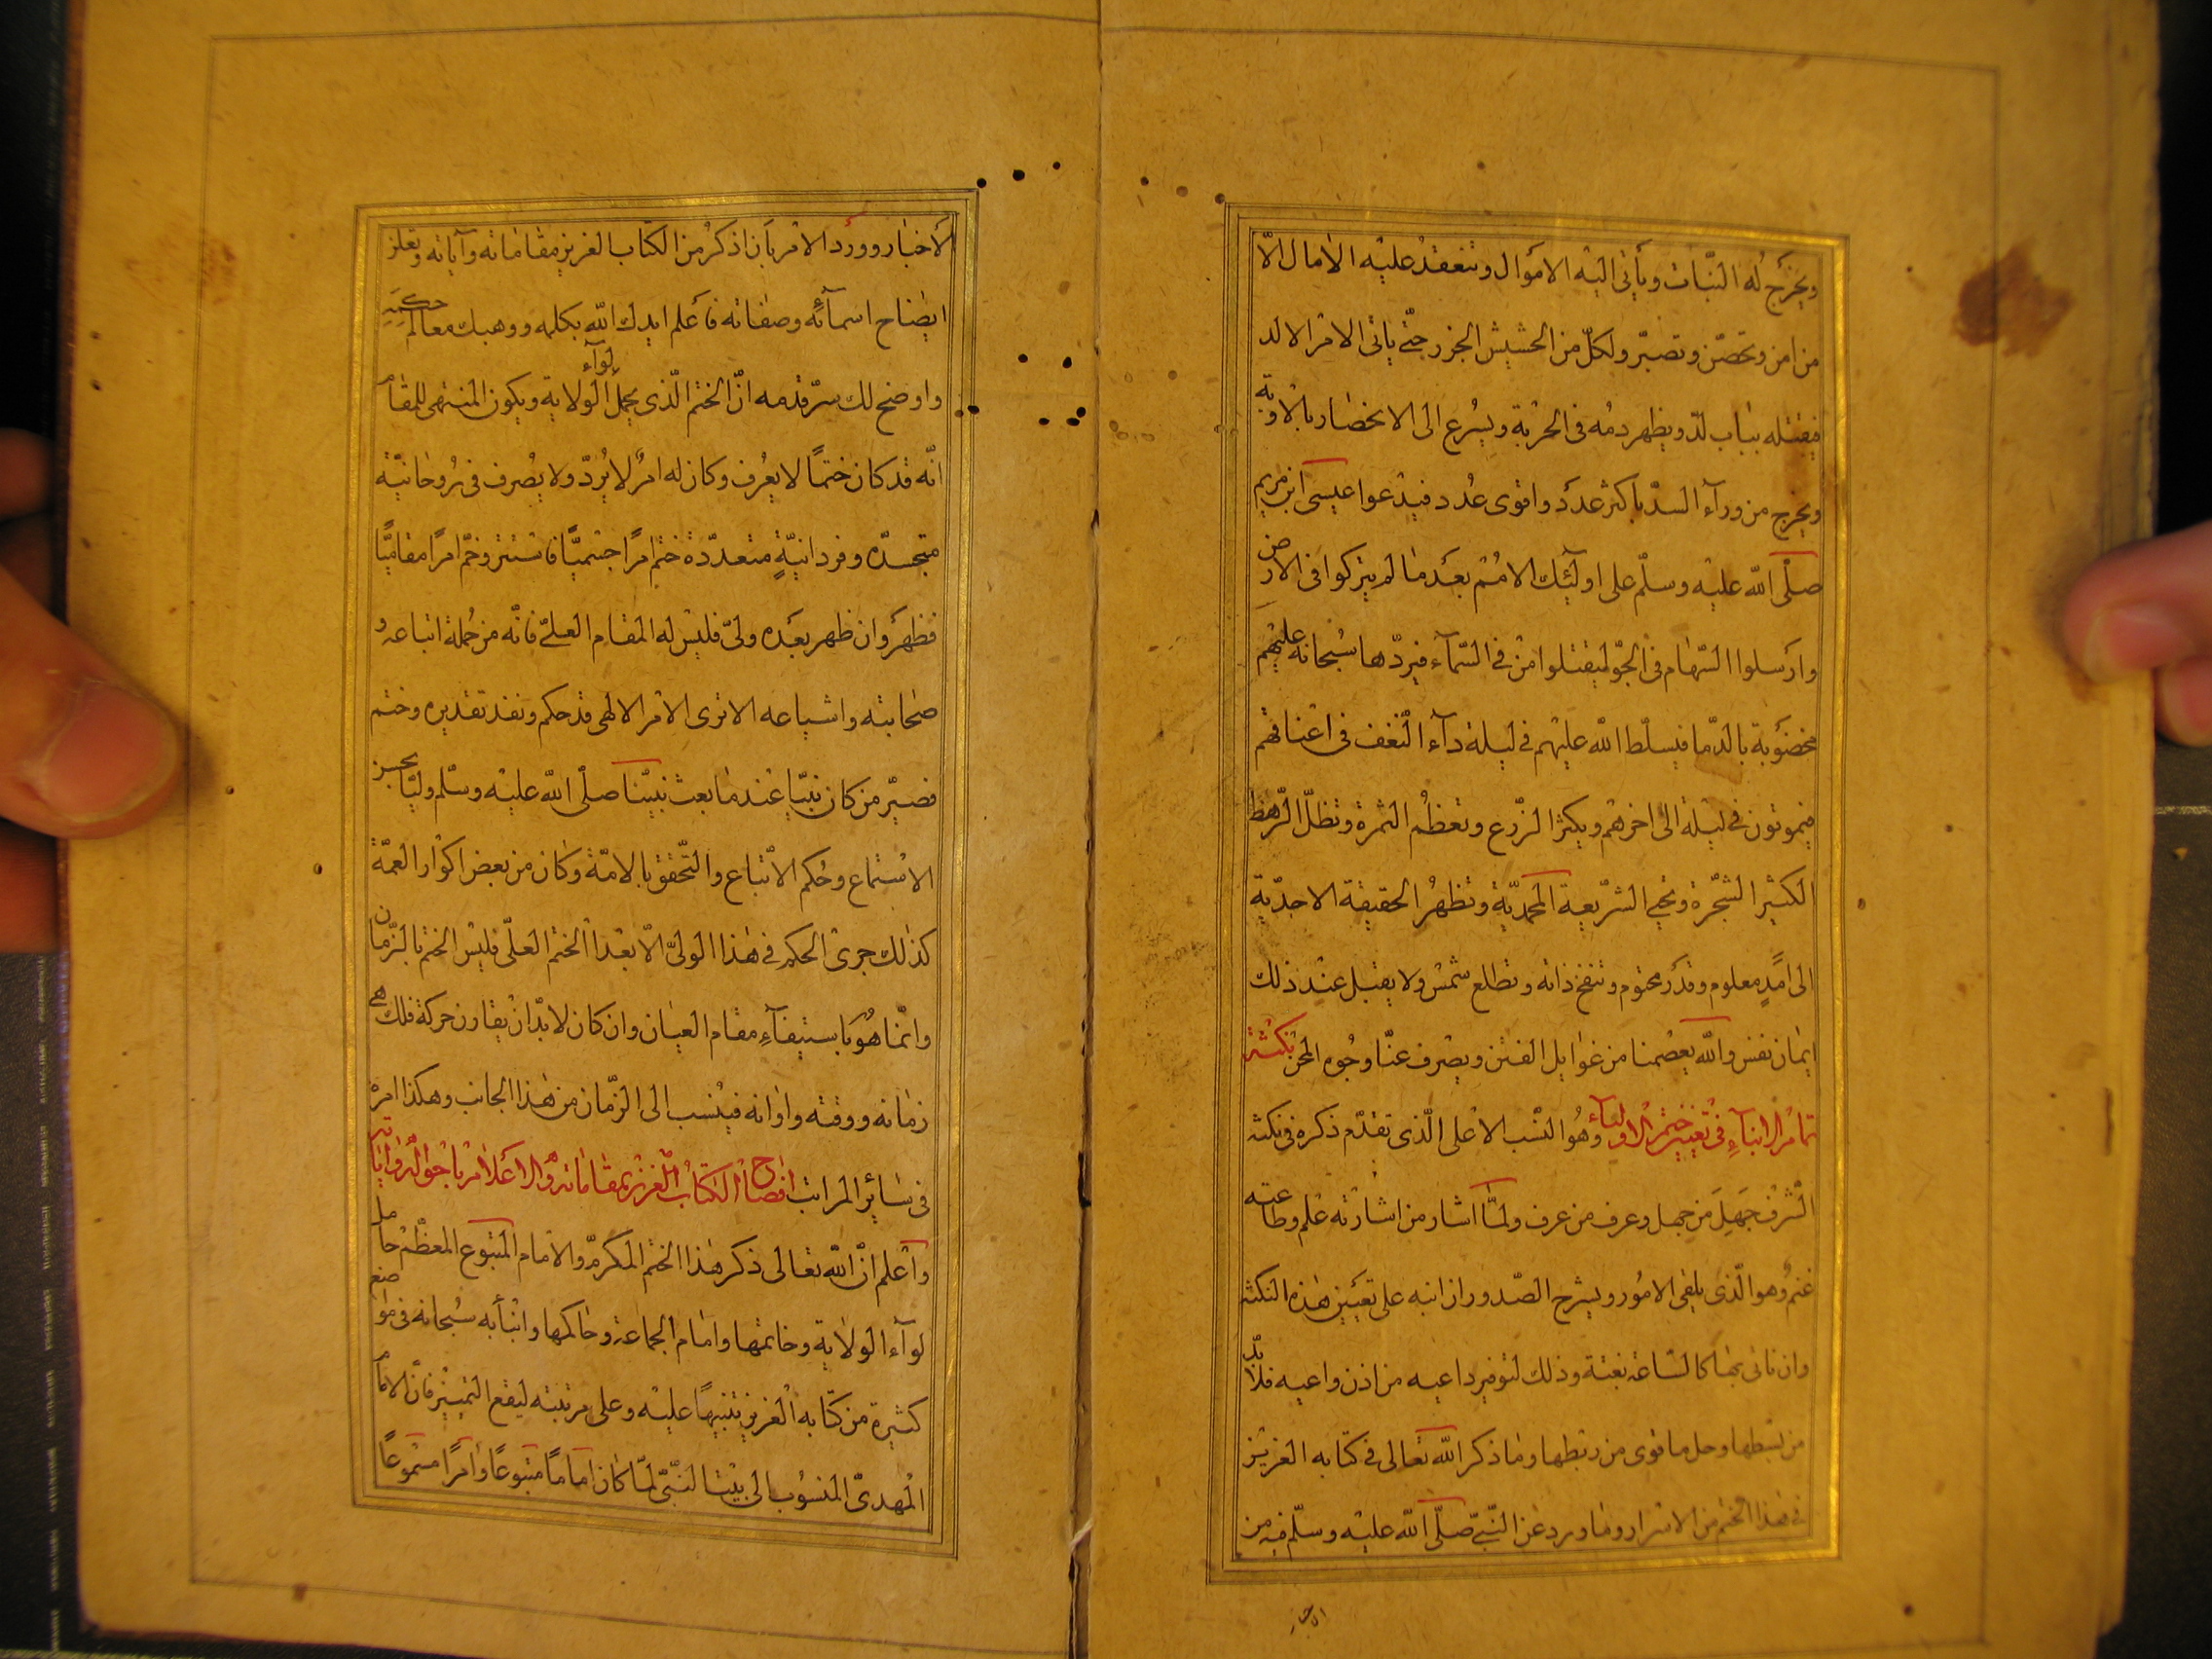 ويخرج له النبات ويأتى اليه الاموال وتنعقد عليه الامال الّا
من امن وتحصّن وتصبّر ولكلّ من الحشيش الجزر حتّى ياتى الامر الالد
فيقتله بباب لدّ ويظهر دمه فى الحربة ويسرع الى الانحضار بالاوبة
ويخرج من ورآء السدّ باكثر عدد واقوى عُدد فيدعوا عيسى ابن مريم
صلّى الله عليه وسلّم على اولئك الامم بعد ما لم يتركوا فى الارض
وارسلوا السّهام فى الجوّ ليقتلوا من فى السّمآء فيردّها سبحانه عليهم
مخضوبة بالدّما فيسلّط الله عليهم فى ليلة دآء النّغف فى اعناقهم
فيموتون فى ليلة الى اخرهم ويكثر الزّرع وتعظم الثمرة وتظلّ الرّهط
الكثير الشّجرة وتحيى الشّريعة المحمديّة وتظهر الحقيقة الاحديّة
الى امدٍ معلوم وقدر محتوم وتنفخ ذاته وتطلع شمس ولا يقبل عند ذلك
ايمان نفس والله يعصمنا من غوايل الفتن ويصرف عنّا وجوه المحن نكتة
تمام الانبآء فى تعيين ختم الاوليآء وهو النّسب الاعلى الّذى تقدّم ذكره فى نكتة
الشّرف جَهِلَ من جهل وعرف من عرف ولمّا اشار من اشارته علم وطاعته
غنم وهو الّذى يلقى الامور ويشرح الصّدور ان انبه على تعيين هذه النكتة
وان تاتى بها كالسّاعة بغتة وذلك لتوفير داعيه من اذن واعيه فلا بدّ
من بسطها وحل ما قوى من ربطها وما ذكر الله تعالى فى كتابه العزيز
فى هذا الختم من الاسرار وما ورد عن النّبىّ صلّى الله عليه وسلّم فيه من
الاخبار
الاخبار وورد الامر بان اذكر من الكتاب العزيز مقاماته وآياته
ايضاح اسمآئه وصفاته فاعلم ايدك الله بكلمه ووهبك معالم حكمه
واوضح لك سرّ قدمه انّ الختم الّذى يحمل لوآء الولاية ويكون المنتهى للمقام
انّه قد كان ختمًا لا يعرف وكان له امرٌ لا يُردّ ولا يُصرف فى رُوحانيّة
متجسّده وفردانيّةٍ متعدّدة ختم امرًا جسميًّا فاستتر وختم امرًا مقاميًّا
فظهر وان ظهر بعده ولىّ فليس له المقام العلىّ فانّه من جُملة اتباعه و
صحابته واشياعه الا ترى الامر الالهى قد حكم ونفد تقديره وختم
فصيّر من كان نبيّا عندما بعث نبيّنا صلّى الله عليه وسلّم وليّا بحسن
الاستماع وحُكم الاتباع والتّحقق بالامّة وكان من بعض اكوار العمّة
كذلك جرى الحكم فى هذا الولىّ الّا بعد الختم العلىّ فليس الختم بالزّمان
وانّما هو باستيفآءِ مقام العيان وان كان لا بدّ ان يقارن حركة فلك هى
زمانه ووقته واوانه فينسب الى الزّمان من هذا الجانب وهكذا امره
فى سائر المراتب افصاح الكتاب العزيز بمقاماته والاعلام باحواله واياته
واعلم انّ الله تعالى ذكر هذا الختم المكرم والامام المتبوع المعظّم حامل
لوآء الولاية وخاتمها وامام الجماعة وحاكمها وانبأ به سُبحانه فى مواضع
كثيرة من كتابه العزيز تنبيهًا عليه وعلى مرتبته ليقع التمييز فانّ الامام
المهدىّ المنسُوب الى بيت النّبىّ لمّا كان امامًا متبوعًا وامرًا مسموعًا